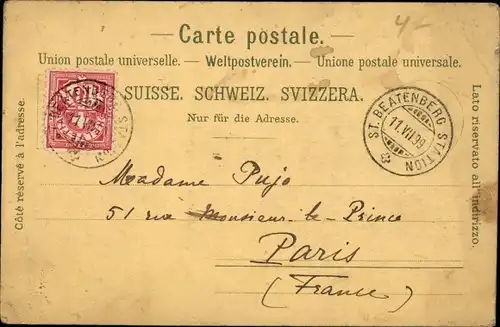 4-
— Carte postale. —
Union postale universelle. — Weltpostverein. — Unione postale universale.
SUISSE. SCHWEIZ. SVIZZERA.
Nur für die Adresse.
Côté réservé à l'adresse.
Lato riservato all'indirizzo.
ST BEATENBERG STATION
11.VII.99
Madame Pujo
51 rue Monsieur-le-Prince
Paris
(France)